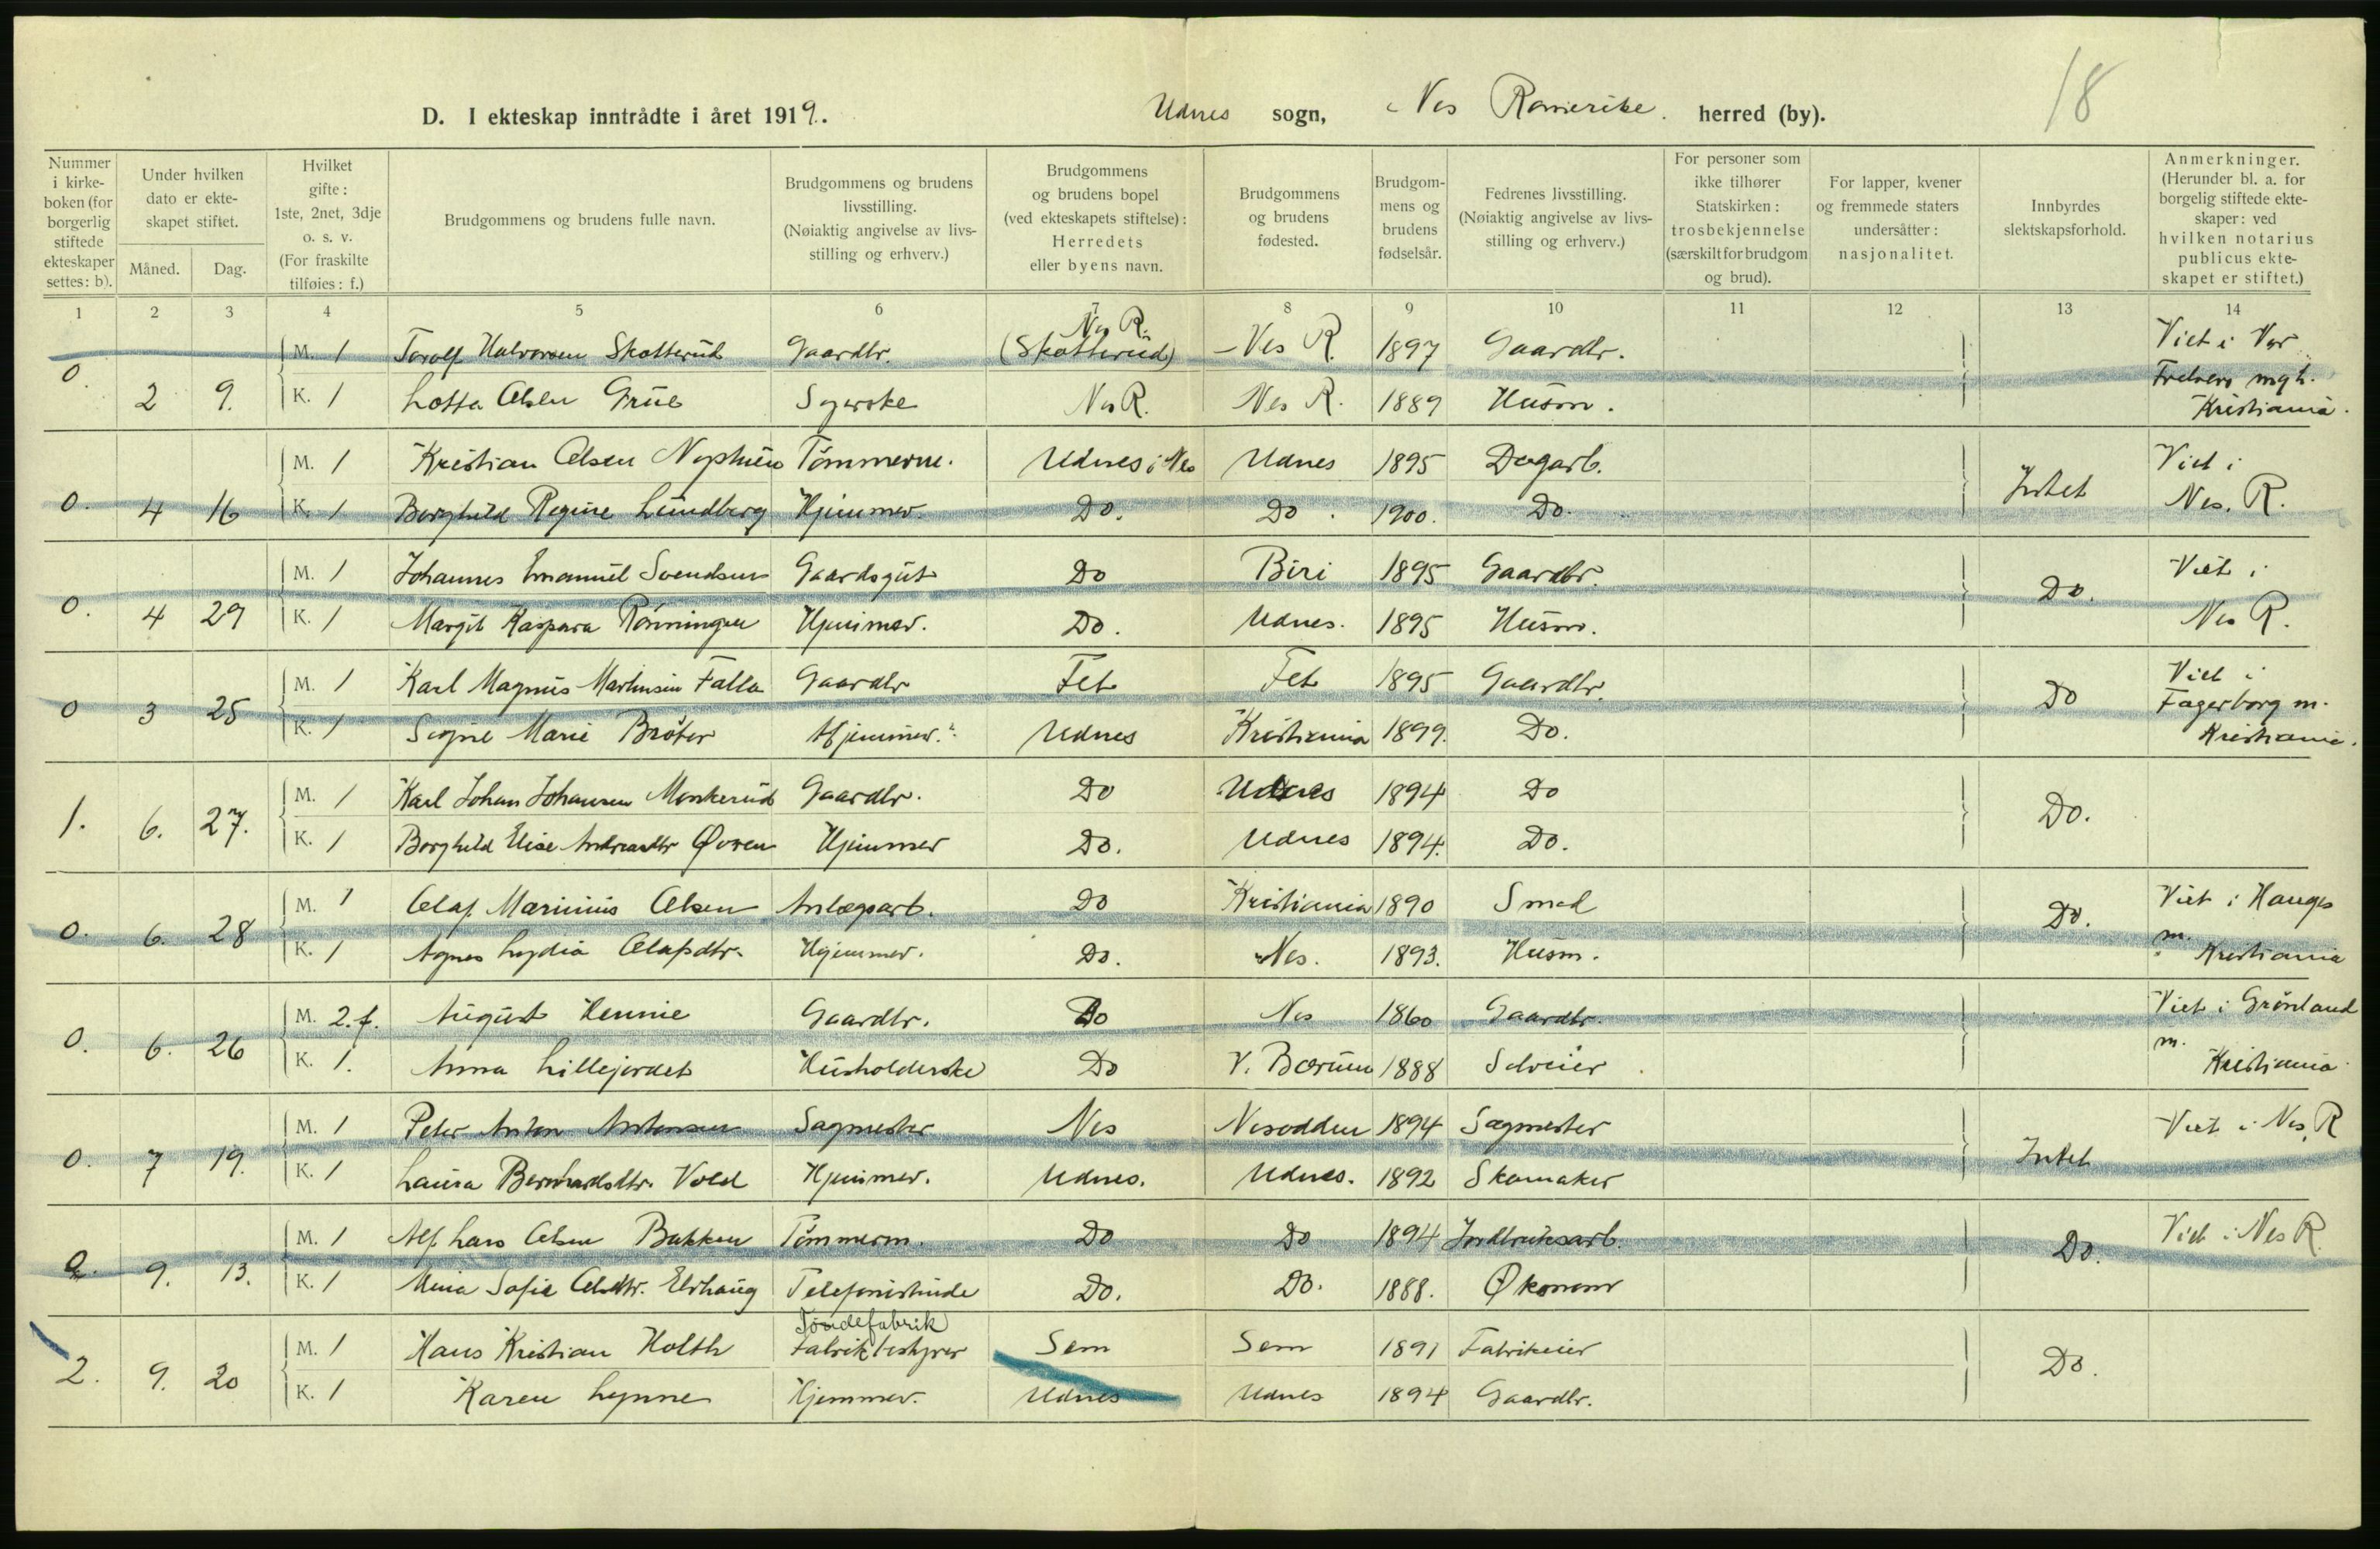 18
D. I ekteskap inntrådte i året 1919. Udnes sogn, Nes Romerike. herred (by).
Nummer i kirkeboken (for borgerlig stiftede ekteskaper settes: b).
Under hvilken dato er ekteskapet stiftet.
Måned.
Dag.
Hvilket gifte: 1ste, 2net, 3dje o. s. v. (For fraskilte tilføies: f.)
Brudgommens og brudens fulle navn.
Brudgommens og brudens livsstilling. (Nøiaktig angivelse av livsstilling og erhverv.)
Brudgommens og brudens bopel (ved ekteskapets stiftelse): Herredets eller byens navn.
Brudgommens og brudens fødested.
Brudgommens og brudens fødselsår.
Fedrenes livsstilling. (Nøiaktig angivelse av livsstilling og erhverv.)
For personer som ikke tilhører Statskirken: trosbekjennelse (særskilt for brudgom og brud).
For lapper, kvener og fremmede staters undersåtter: nasjonalitet.
Innbyrdes slektskapsforhold.
Anmerkninger. (Herunder bl. a. for borgelig stiftede ekteskaper: ved hvilken notarius publicus ekteskapet er stiftet.)
1 2 3 4 5 6 7 8 9 10 11 12 13 14
M. 1 Torolf Halvorsen Skotterud Gaardbr. Nes R. (Skotterud) Nes R. 1897 Gaardbr. Viet i Vor
0. 2 9. K. 1 Lotta Olsen Grue Syerske Nes R. Nes R. 1889 Husm. Frelsers mgh. Kristiania.
M. 1 Kristian Olsen Tømmerm. Udnes i Nes Udnes 1895 Dagarb. Viet i
0. 4 16 K. 1 Borghild Regine Lundberg Hjemmev. Do. Do. 1900. Do. Intet Nes. R.
M. 1 Johannes Emanuel Svendsen Gaardsgut Do Biri 1895 Gaardbr. Viet i
0. 4 29 K. 1 Margit Kaspara Rønningen Hjemmev. Do. Udnes. 1895 Husm. Do. Nes R.
M. 1 Karl Magnus Martinsen Falla Gaardbr Fet Fet 1895 Gaardbr. Viet i
0 3 25 K. 1 Signe Marie Bråter Hjemmev. Udnes Kristiania 1899. Do. Do Fagerborg m. Kristiania.
M. 1 Karl Johan Johansen Monkerud Gaardbr. Do Udnes 1894 Do
1. 6. 27. K. 1 Borghild Elise Andreasdtr Øvren Hjemmev Do. Udnes 1894. Do. Do.
M. 1 Olaf Marinius Olsen Anlægsarb. Do Kristiania 1890 Smed Viet i Hauges
0. 6. 28 K. 1 Agnes Lydia Olafsdtr. Hjemmev. Do. Nes. 1893. Husm. Do. m. Kristiania
M. 2. f. August Hennie Gaardbr. Do Nes 1860 Gaardbr. Viet i Grønland
0. 6. 26 K. 1. Anna Lillejordet Husholderske Do V. Bærum 1888 Selveier m. Kristiania
M. 1 Peter Anton Antonsen Sagmester Nes Nesodden 1894 Sagmester Viet i Nes R
0. 7 19. K. 1 Laura Bernhardsdtr. Vold Hjemmev. Udnes. Udnes. 1892 Skomaker Intet
M. 1 Alf Lars Olsen Bakken Tømmerm. Do Do 1894 Jordbruksarb. Viet i Nes R.
0. 9. 13. K. 1 Mina Sofie Olsdtr. Elvhaug Telefonistinde Do. Do. 1888. Økonom Do.
M. 1 Hans Kristian Holth Tøndefabrik Fabrikbestyrer Sem Sem 1891 Fabrikeier
2. 9. 20 K. 1 Karen Lynne Hjemmev. Udnes Udnes 1894 Gaardbr. Do.